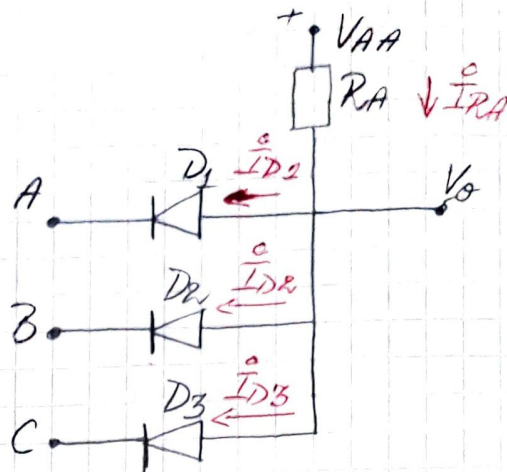 +
VAA
RA
İRA
D1
İD1
A
Vo
D2
İD2
B
D3
İD3
C